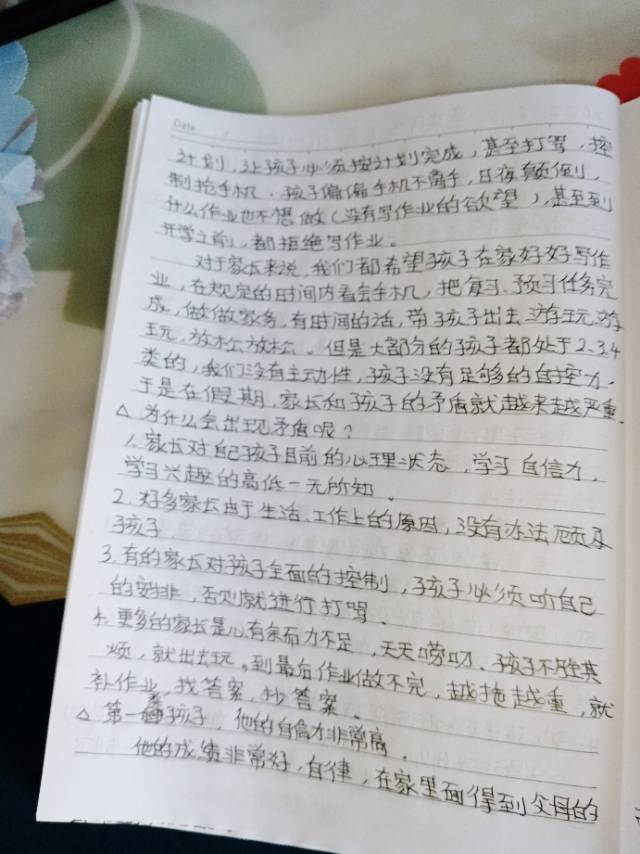 Date
计划,让孩子必须按计划完成,甚至打骂,控
制抢手机,孩子偏偏手机不离手,日夜颠倒,
什么作业也不想做(没有写作业的欲望),甚至到
开学之前,都拒绝写作业。
对于家长来说,我们都希望孩子在家好好写作
业,在规定的时间内看会手机,把复习、预习任务完
成,做做家务,有时间的话,带孩子出去游玩游
玩,放松放松。但是大部分的孩子都处于2.3.4
类的,我们没有主动性,孩子没有足够的自控力,
于是在假期,家长和孩子的矛盾就越来越严重.
△ 为什么会出现矛盾呢?
1.家长对自己孩子目前的心理状态,学习自信力,
学习兴趣的高低一无所知.
2.好多家长由于生活、工作上的原因,没有办法顾及
孩子.
3.有的家长对孩子全面的控制,孩子必须听自己
的安排,否则就进行打骂.
4.更多的家长是心有余而力不足,天天唠叨、孩子不胜其
烦,就出去玩。到最后作业做不完,越拖越重,就
补作业,找答案,抄答案.
△ 第一类孩子,他的自信力非常高.
他的成绩非常好,自律,在家里面得到父母的